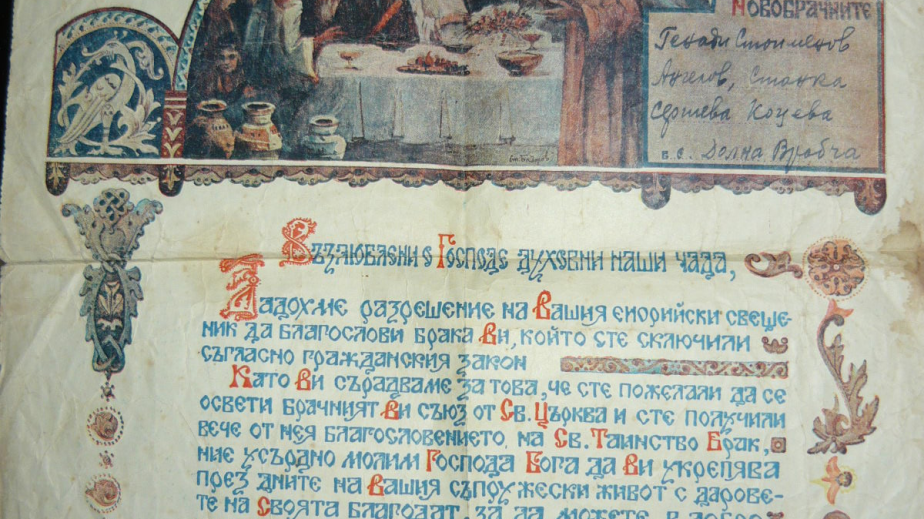 Новобрачните
Генади Стоименов
Ангелов, Станка
Сергева Коцева
в с. Долна Врабча
Възлюблени о Господе духовни наши чада,
Дадохме разрешение на Вашия енорийски свеще-
ник да благослови брака Ви, който сте сключили
съгласно гражданския закон
Като Ви сърадваме за това, че сте пожелали да се
освети брачният Ви съюз от Св. Църква и сте получили
вече от нея благословението на Св. Таинство Брак,
ние усърдно молим Господа Бога да Ви укрепява
през дните на Вашия съпружески живот с дарове-
те на Своята благодат, за да можете в добро